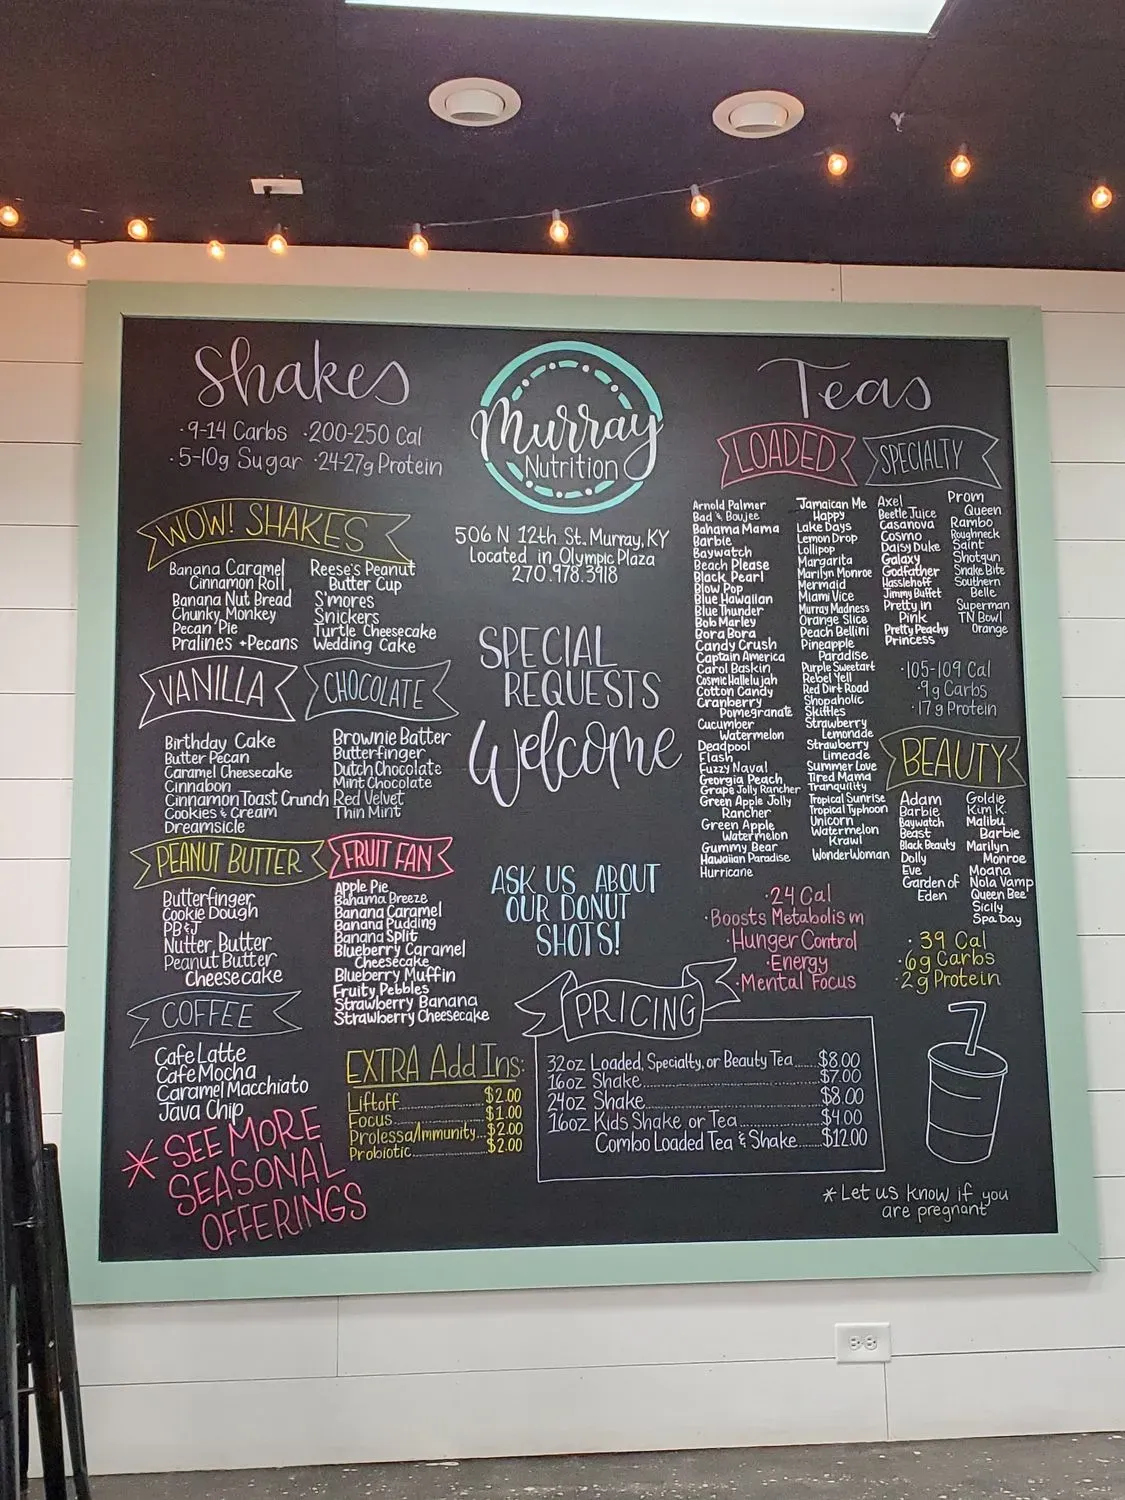 Shakes
·9-14 Carbs ·200-250 Cal
·5-10g Sugar ·24-27g Protein
WOW! SHAKES
Banana Caramel
Cinnamon Roll
Banana Nut Bread
Chunky Monkey
Pecan Pie
Pralines +Pecans
Reese's Peanut
Butter Cup
S'mores
Snickers
Turtle Cheesecake
Wedding Cake
VANILLA
Birthday Cake
Butter Pecan
Caramel Cheesecake
Cinnabon
Cinnamon Toast Crunch
Cookies & Cream
Dreamsicle
CHOCOLATE
Brownie Batter
Butterfinger
Dutch Chocolate
Mint Chocolate
Red Velvet
Thin Mint
PEANUT BUTTER
Butterfinger
Cookie Dough
PB&J
Nutter Butter
Peanut Butter
Cheesecake
FRUIT FAN
Apple Pie
Bahama Breeze
Banana Caramel
Banana Pudding
Banana Split
Blueberry Caramel
Cheesecake
Blueberry Muffin
Fruity Pebbles
Strawberry Banana
Strawberry Cheesecake
COFFEE
Cafe Latte
Cafe Mocha
Caramel Macchiato
Java Chip
* SEE MORE
SEASONAL
OFFERINGS
EXTRA Add Ins:
Liftoff..........$2.00
Focus..........$1.00
Prolessa/Immunity...$2.00
Probiotic..........$2.00
Murray
Nutrition
506 N 12th St. Murray, KY
Located in Olympic Plaza
270.978.3918
SPECIAL
REQUESTS
Welcome
ASK US ABOUT
OUR DONUT
SHOTS!
PRICING
32oz Loaded, Specialty, or Beauty Tea.....$8.00
16oz Shake..........$7.00
24oz Shake..........$8.00
16oz Kids Shake or Tea..........$4.00
Combo Loaded Tea & Shake.....$12.00
Teas
LOADED
Arnold Palmer
Bad & Boujee
Bahama Mama
Barbie
Baywatch
Beach Please
Black Pearl
Blow Pop
Blue Hawaiian
Blue Thunder
Bob Marley
Bora Bora
Candy Crush
Captain America
Carol Baskin
Cosmic Hallelujah
Cotton Candy
Cranberry
Pomegranate
Cucumber
Watermelon
Deadpool
Flash
Fuzzy Naval
Georgia Peach
Grape Jolly Rancher
Green Apple Jolly
Rancher
Green Apple
Watermelon
Gummy Bear
Hawaiian Paradise
Hurricane
Jamaican Me
Happy
Lake Days
Lemon Drop
Lollipop
Margarita
Marilyn Monroe
Mermaid
Miami Vice
Murray Madness
Orange Slice
Peach Bellini
Pineapple
Paradise
Purple Sweetart
Rebel Yell
Red Dirt Road
Shopaholic
Skittles
Strawberry
Lemonade
Strawberry
Limeade
Summer Love
Tired Mama
Tranquility
Tropical Sunrise
Tropical Typhoon
Unicorn
Watermelon
Krawl
Wonder Woman
·24 Cal
·Boosts Metabolism
·Hunger Control
·Energy
·Mental Focus
SPECIALTY
Axel
Beetle Juice
Casanova
Cosmo
Daisy Duke
Galaxy
Godfather
Hasslehoff
Jimmy Buffet
Pretty in
Pink
Pretty Peachy
Princess
Prom
Queen
Rambo
Roughneck
Saint
Shotgun
Snake Bite
Southern
Belle
Superman
TN Bowl
Orange
·105-109 Cal
·9g Carbs
·17g Protein
BEAUTY
Adam
Barbie
Baywatch
Beast
Black Beauty
Dolly
Eve
Garden of
Eden
Goldie
Kim K.
Malibu
Barbie
Marilyn
Monroe
Moana
Nola Vamp
Queen Bee
Sicily
Spa Day
·39 Cal
·6g Carbs
·2g Protein
*Let us know if you
are pregnant